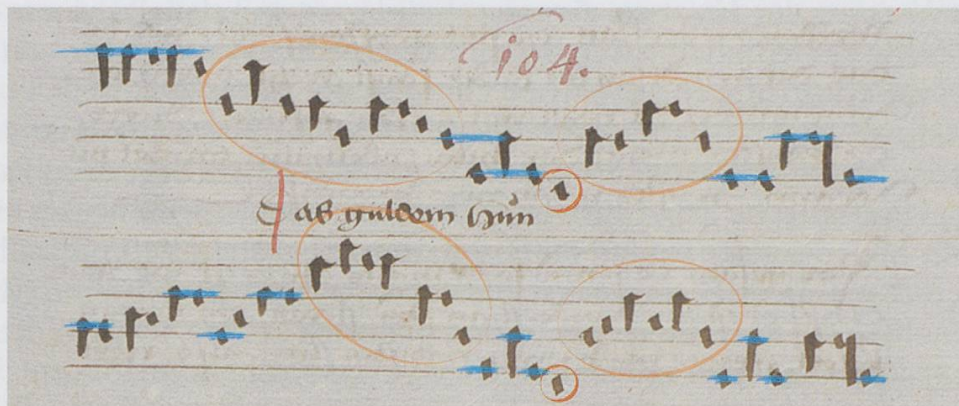 104.
Das guldein Hun